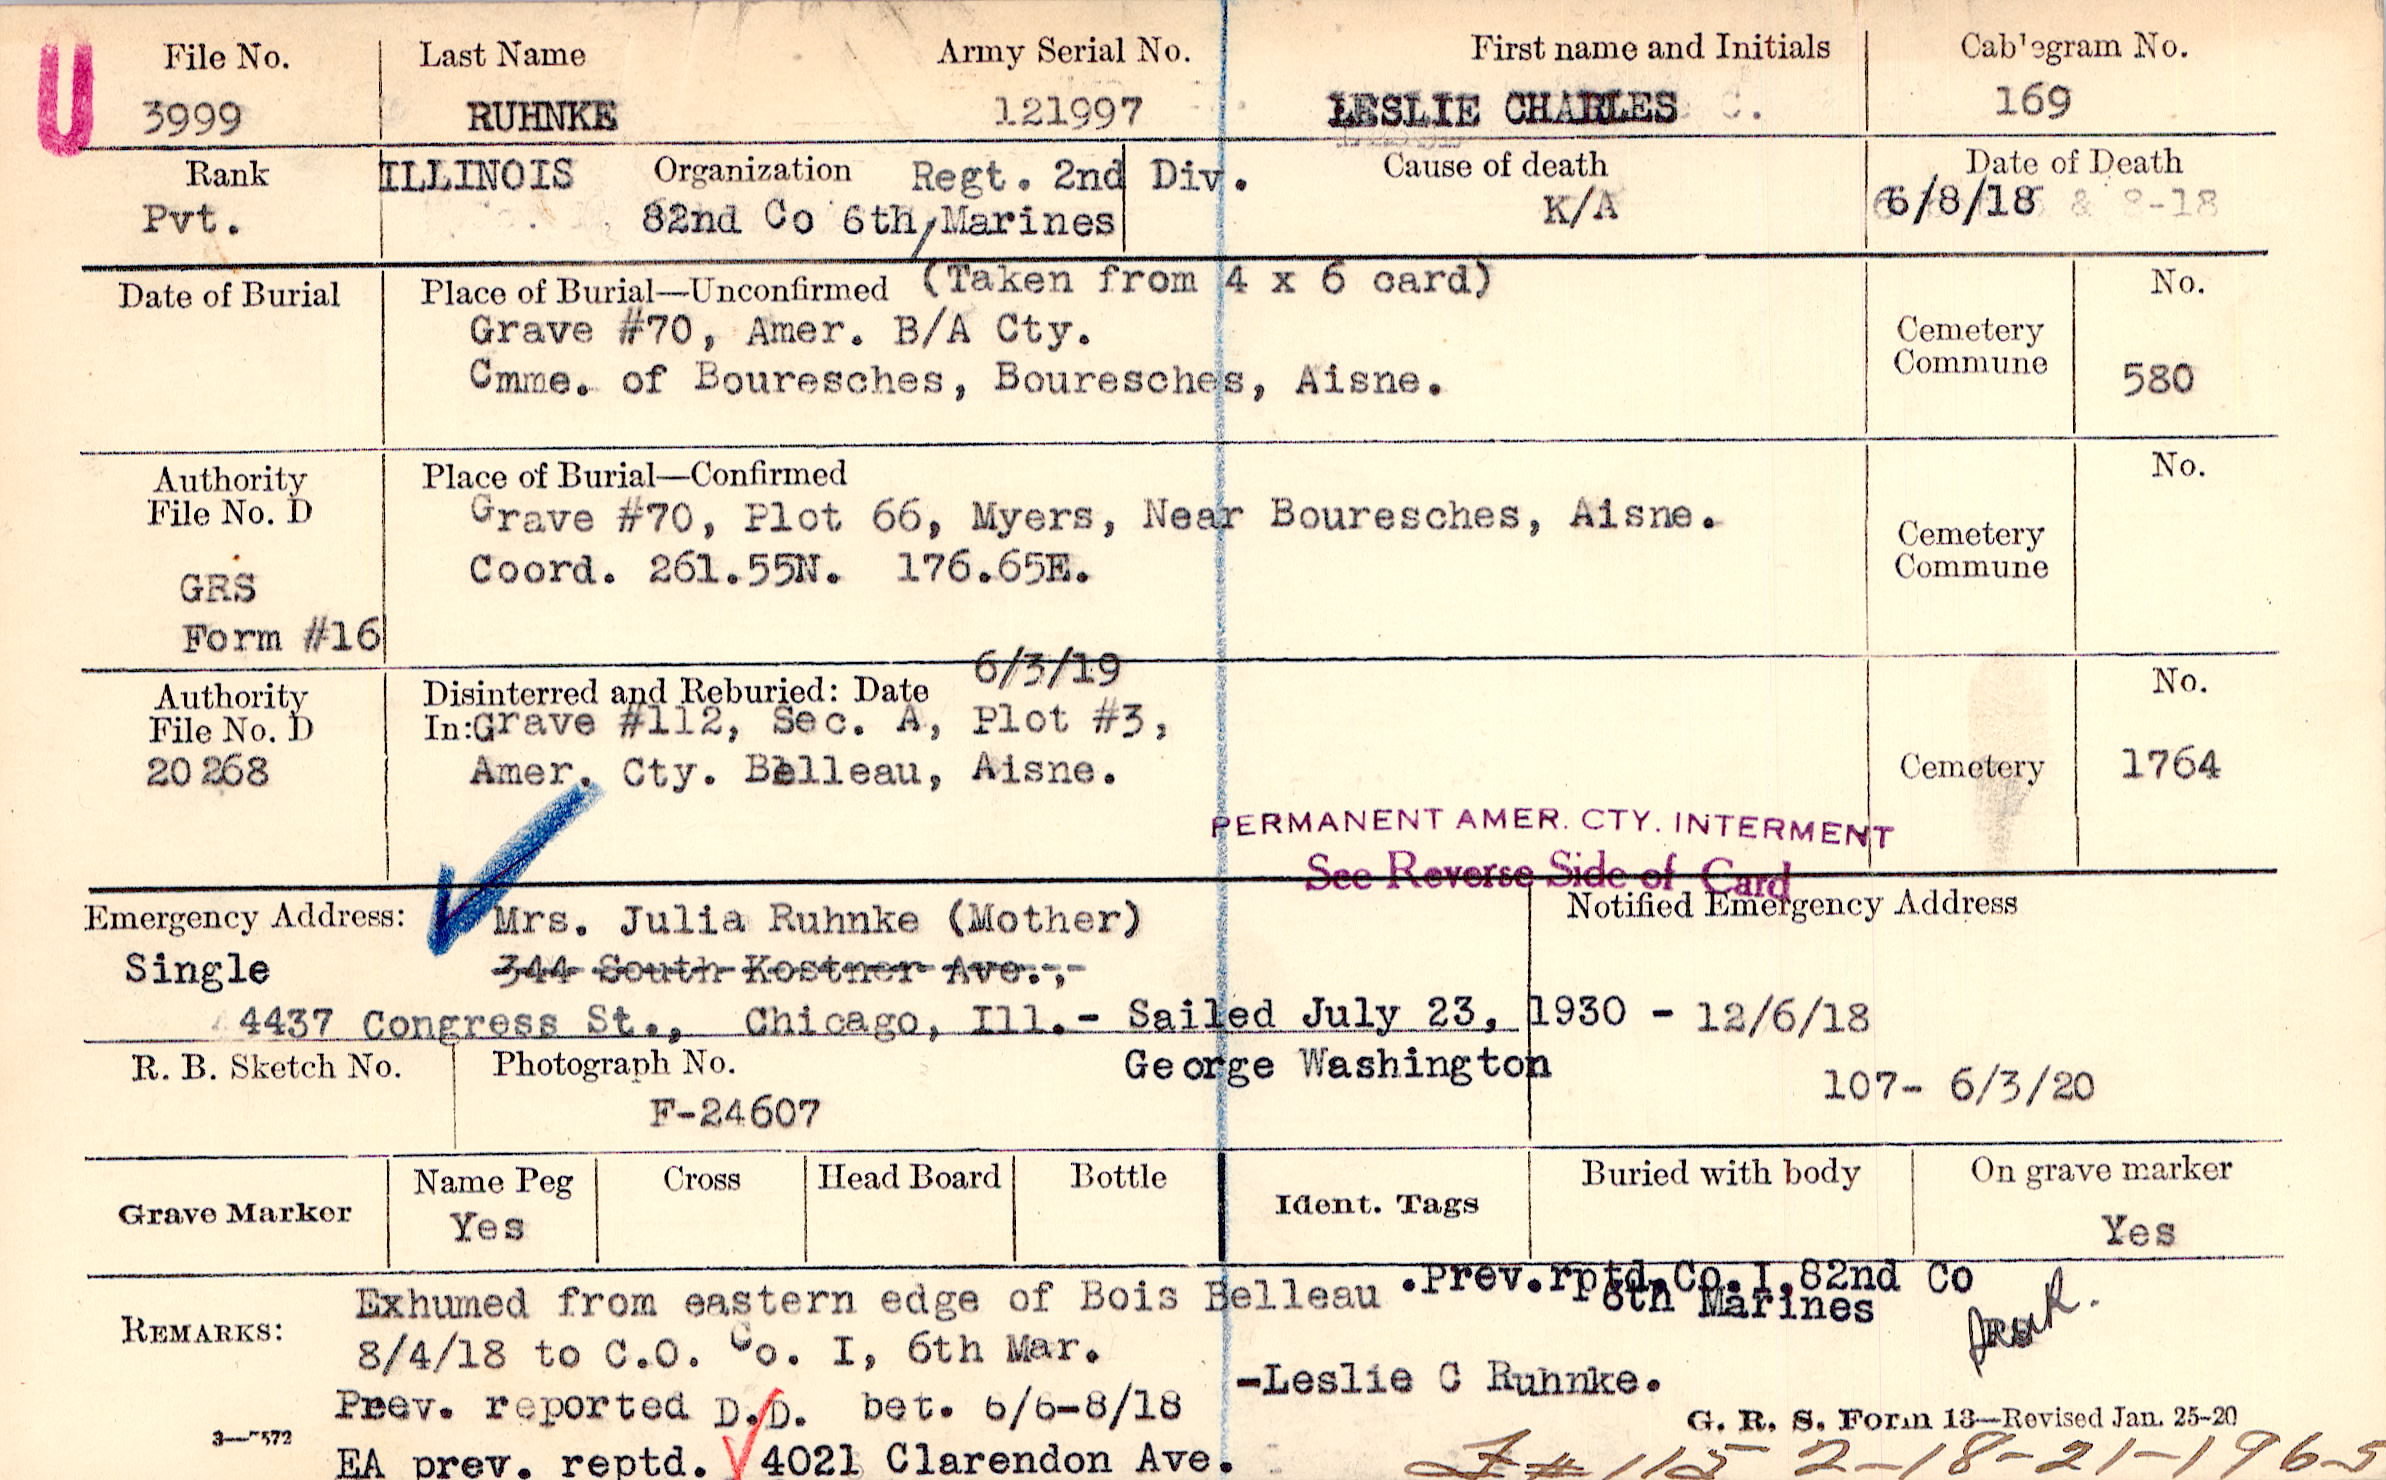 U
File No. Last Name Army Serial No. First name and Initials Cablegram No.
3999 RUHNKE 121997 LESLIE CHARLES C. 169
Rank ILLINOIS Organization Regt. 2nd Div. Cause of death Date of Death
Pvt. 82nd Co 6th, Marines K/A 6/8/18 & 8-18
Date of Burial Place of Burial—Unconfirmed (Taken from 4 x 6 card) No.
Grave #70, Amer. B/A Cty. Cemetery
Cmme. of Bouresches, Bouresches, Aisne. Commune 580
Authority Place of Burial—Confirmed No.
File No. D Grave #70, Plot 66, Myers, Near Bouresches, Aisne. Cemetery
GRS Coord. 261.55N. 176.65E. Commune
Form #16
6/3/19
Authority Disinterred and Reburied: Date No.
File No. D In: Grave #112, Sec. A, Plot #3,
20268 Amer. Cty. Belleau, Aisne. Cemetery 1764
PERMANENT AMER. CTY. INTERMENT
See Reverse Side of Card
Emergency Address: Mrs. Julia Ruhnke (Mother) Notified Emergency Address
Single 344 South Kostner Ave.,
4437 Congress St., Chicago, Ill.- Sailed July 23, 1930 - 12/6/18
R. B. Sketch No. Photograph No. George Washington
F-24607 107- 6/3/20
Grave Marker Name Peg Cross Head Board Bottle Ident. Tags Buried with body On grave marker
Yes Yes
REMARKS: Exhumed from eastern edge of Bois Belleau .Prev.rptd.Co.I,82nd Co
6th Marines
8/4/18 to C.O. Co. I, 6th Mar.
-Leslie C Ruhnke.
Prev. reported D.D. bet. 6/6-8/18
G. R. S. Form 13—Revised Jan. 25-20
EA prev. reptd. 4021 Clarendon Ave.
# 115 2-18-21-1965